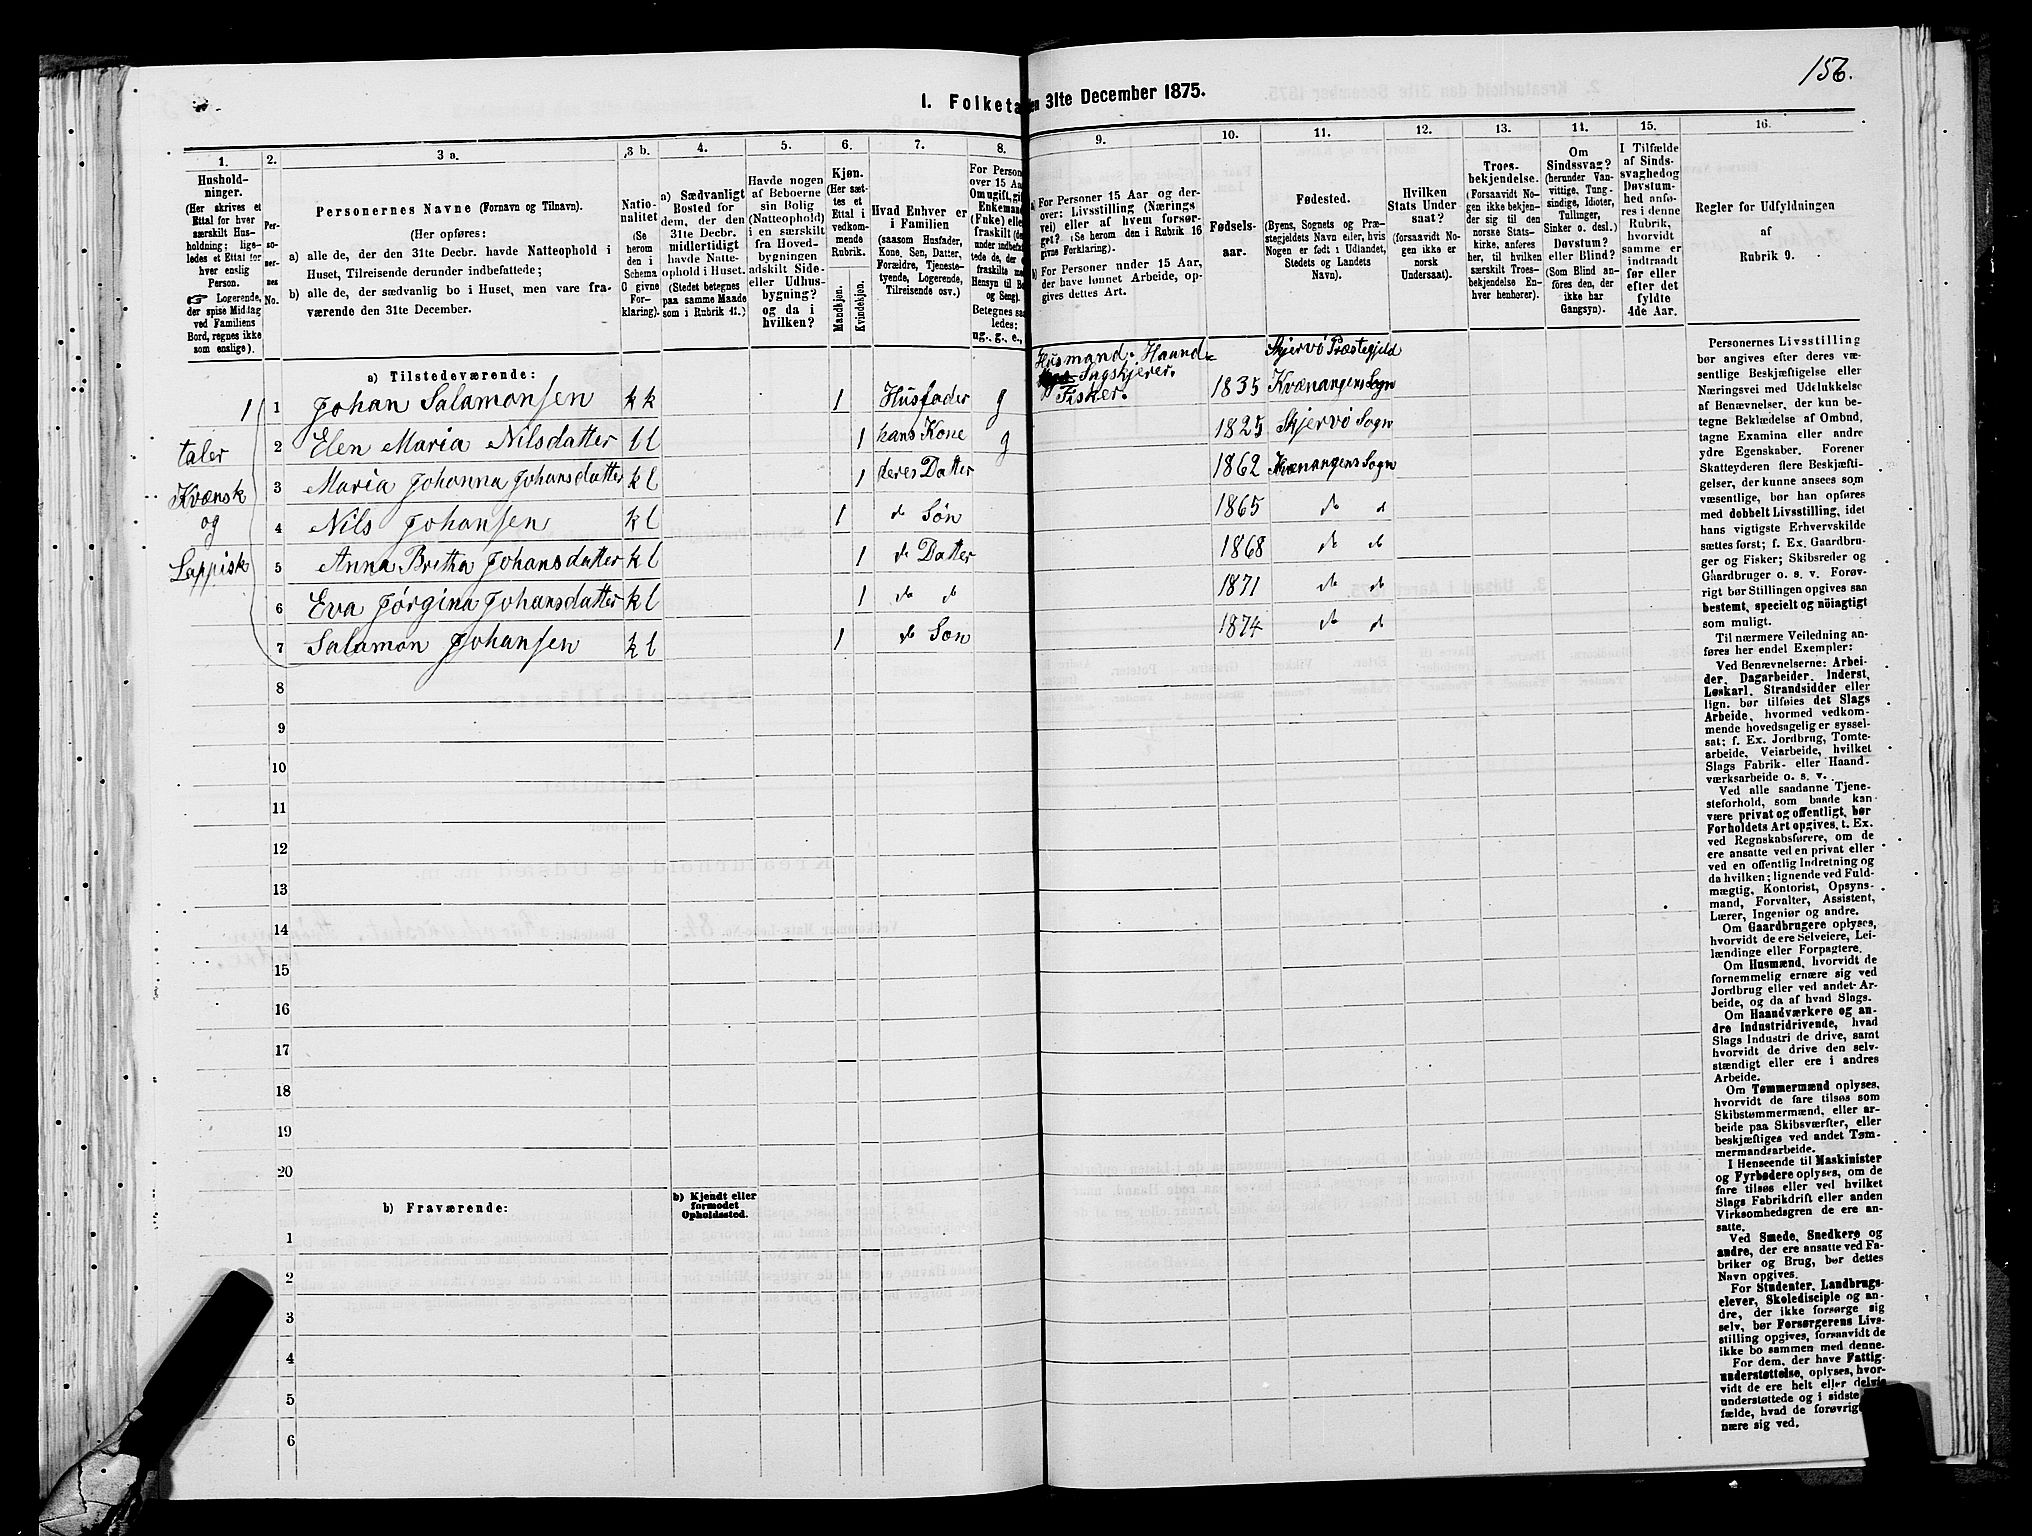 156.
I. Folketa en 31te December 1875.
1. 2. 3 a. 3 b. 4. 5. 6. 7. 8. 9. 10. 11. 12. 13. 14. 15. 16.
Hushold-
ninger.
(Her skrives et
Ettal for hver
særskilt Hus-
holdning; lige-
ledes et Ettal for
hver enslig
Person.
☞ Logerende,
der spise Middag
ved Familiens
Bord, regnes ikke
som enslige).
Per-
so-
ner-
nes
No.
Personernes Navne (Fornavn og Tilnavn).
(Her opføres:
a) alle de, der den 31te Decbr. havde Natteophold i
Huset, Tilreisende derunder indbefattede;
b) alle de, der sædvanlig bo i Huset, men vare fra-
værende den 31te December.
Natio-
nalitet
(Se
herom
den i
Schema
O givne
For-
klaring).
a) Sædvanligt
Bosted for
dem, der den
31te Decbr.
midlertidigt
havde Natte-
ophold i Huset.
(Stedet betegnes
paa samme Maade
som i Rubrik 11.)
Havde nogen
af Beboerne
sin Bolig
(Natteophold)
i en særskilt
fra Hoved-
bygningen
adskilt Side-
eller Udhus-
bygning?
og da i
hvilken?
Kjøn.
(Her sæt-
tes et
Ettal i
vedkom-
mende
Rubrik.
Mandkjøn.
Kvindekjøn.
Hvad Enhver er
i Familien
(saasom Husfader,
Kone, Søn, Datter,
Forældre, Tjeneste-
tyende, Logerende,
Tilreisende osv.)
For Person
over 15 Aa
Om ugift, gif
Enkemand
(Enke) elle
fraskilt (de
under indbefat
tede de, der e
fraskilte me
Hensyn til Be
og Seng).
Betegnes saa
ledes:
ug., g., e.,
a) For Personer 15 Aar og der-
over: Livsstilling (Nærings
vei) eller af hvem forsør-
get? (Se herom den i Rubrik 16
givne Forklaring).
b) For Personer under 15 Aar,
der have lønnet Arbeide, op-
gives dettes Art.
Fødsels-
aar.
Fødested.
(Byens, Sognets og Præ-
stegjeldets Navn eller, hvis
Nogen er født i Udlandet,
Stedets og Landets
Navn).
Hvilken
Stats Under
saat?
(forsaavidt No-
gen ikke er
norsk
Undersaat).
Troes-
bekjendelse.
(Forsaavidt No-
gen ikke bekjen-
der sig til den
norske Stats-
kirke, anføres
her, til hvilken
særskilt Troes-
bekjendelse En-
hver henhører).
Om
Sindssvag?
(herunder Van-
vittige, Tung-
sindige, Idioter,
Tullinger,
Sinker o. desl.)
Døvstum?
eller Blind?
(Som Blind an-
føres den, der
ikke har
Gangsyn).
I Tilfælde
af Sinds-
svaghed og
Døvstum-
hed anfø-
res i denne
Rubrik,
hvorvidt
samme er
indtraadt
før eller
efter det
fyldte
4de Aar.
Regler for Udfyldningen
af
Rubrik 9.
a) Tilstedeværende:
Husmand. Haand-
Sagskjærer.
Fisker.
Skjervø Præstegjeld
1 1 Johan Salamonsen k k 1 Husfader g 1835 Kvænangens Sogn
2 Elen Maria Nilsdatter l l 1 hans Kone g 1825 Skjervø Sogn
3 Maria Johanna Johansdatter k l 1 deres Datter 1862 Kvænangens Sogn
4 Nils Johansen k l 1 do Søn 1865 do do
5 Anna Britha Johansdatter k l 1 do Datter 1868 do do
6 Eva Jørgina Johansdatter k l 1 do do 1871 do do
7 Salamon Johansen k l 1 do Søn 1874 do do
taler
Kvænsk
og
Lappisk
8
9
10
11
12
13
14
15
16
17
18
19
20
b) Fraværende:
b) Kjendt eller
formodet
Opholdssted.
1
2
3
4
5
6
Personernes Livsstilling
bør angives efter deres væ-
sentlige Beskjæftigelse eller
Næringsvei med Udelukkelse
af Benævnelser, der kun be-
tegne Beklædelse af Ombud,
tagne Examina eller andre
ydre Egenskaber. Forener
Skatteyderen flere Beskjæfti-
gelser, der kunne ansees som
væsentlige, bør han opføres
med dobbelt Livsstilling, idet
hans vigtigste Erhvervskilde
sættes først; f. Ex. Gaardbru-
ger og Fisker; Skibsreder og
Gaardbruger o. s. v. Forøv-
rigt bør Stillingen opgives saa
bestemt, specielt og nøiagtigt
som muligt.
Til nærmere Veiledning an-
føres her endel Exempler:
Ved Benævnelserne: Arbei-
der, Dagarbeider, Inderst,
Løskarl, Strandsidder eller
lign. bør tilføies det Slags
Arbeide, hvormed vedkom-
mende hovedsagelig er syssel-
sat; f. Ex. Jordbrug, Tomte-
arbeide, Veiarbeide, hvilket
Slags Fabrik- eller Haand-
værksarbeide o. s. v.
Ved alle saadanne Tjene-
steforhold, som baade kan
være privat og offentligt, bør
Forholdets Art opgives, t. Ex.
ved Regnskabsførere, om de
ere ansatte ved en privat eller
ved en offentlig Indretning og
da hvilken; lignende ved Fuld-
mægtig, Kontorist, Opsyns-
mand, Forvalter, Assistent,
Lærer, Ingeniør og andre.
Om Gaardbrugere oplyses,
hvorvidt de ere Selveiere, Lei-
lændinge eller Forpagtere.
Om Husmænd, hvorvidt de
fornemmelig ernære sig ved
Jordbrug eller ved andet Ar-
beide, og da af hvad Slags.
Om Haandværkere og an-
dre Industridrivende, hvad
Slags Industri de drive, samt
hvorvidt de drive den selv-
stændigt eller ere i andres
Arbeide.
Om Tømmermænd oplyses,
hvorvidt de fare tilsøs som
Skibstømmermænd, eller ar-
beide paa Skibsværfter, eller
beskjæftiges ved andet Tøm-
mermandsarbeide.
I Henseende til Maskinister
og Fyrbødere oplyses, om de
fare tilsøs eller ved hvilket
Slags Fabrikdrift eller anden
Virksomhedsgren de ere an-
satte.
Ved Smede, Snedkere og
andre, der ere ansatte ved Fa-
briker og Brug, bør dettes
Navn opgives.
For Studenter, Landbrugs-
elever, Skoledisciple og an-
dre, der ikke forsørge sig
selv, bør Forsørgerens Livs-
stilling opgives, forsaavidt de
ikke bo sammen med denne.
For dem, der have Fattig-
understøttelse, oplyses, hvor-
vidt de ere helt eller delvis
understøttede og i sidste
fælde, hvad de forøvrigt
nære sig ved.